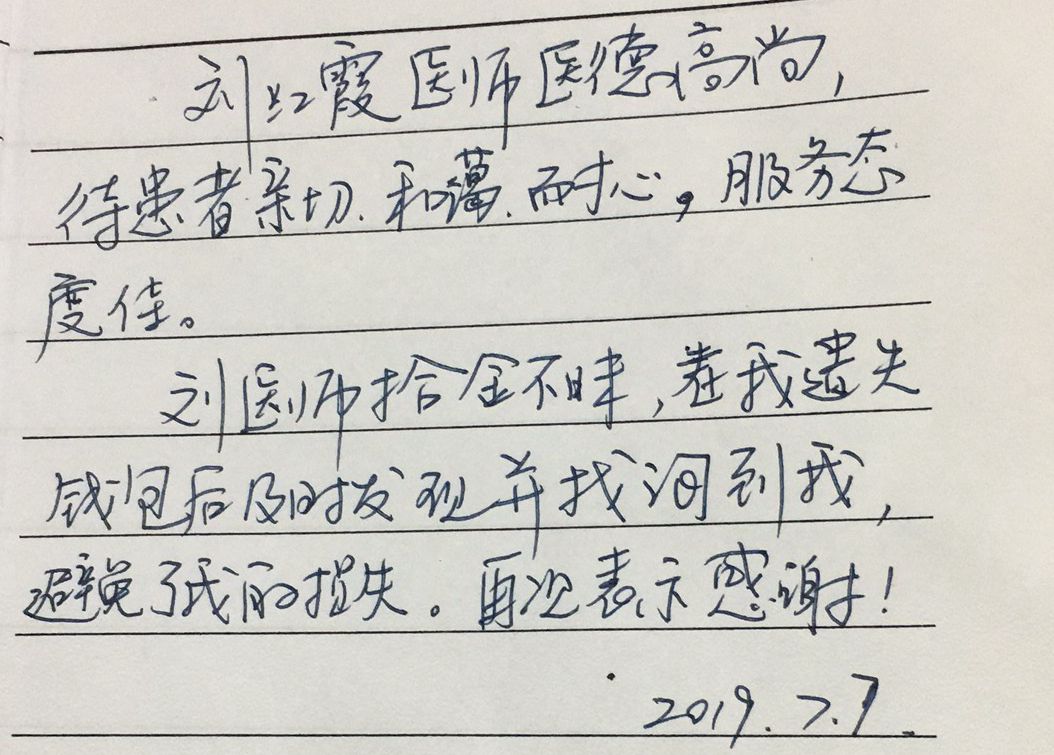 刘红霞医师医德高尚,
待患者亲切.和蔼.而耐心。服务态
度佳。
刘医师拾金不昧,在我遗失
钱包后及时发现并找询到我,
避免了我的损失。再次表示感谢!
2019.7.7.